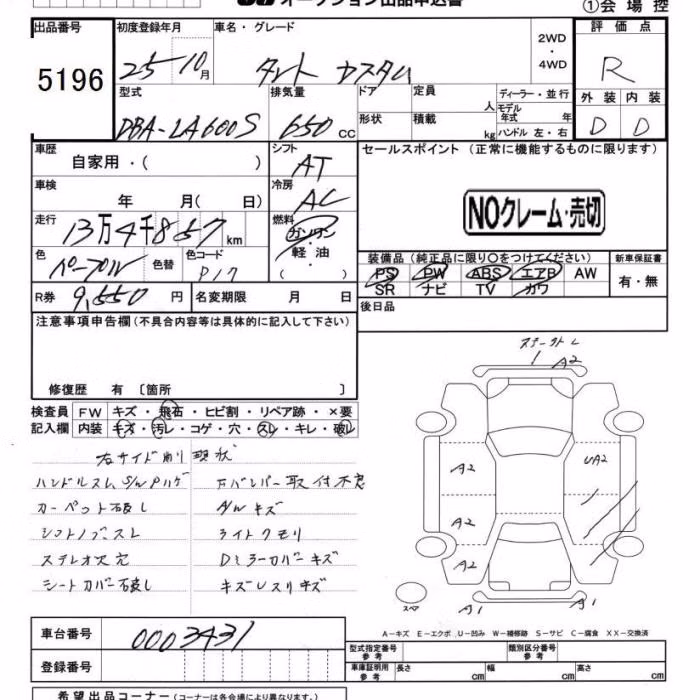 オークション出品申込書 ①会場控
出品番号 初度登録年月 車名・グレード 2WD・4WD 評価点
5196 25 10月 タント カスタム R
型式 排気量 ドア 定員 人 ディーラー・並行 外装 内装
DBA-LA600S 650 CC 形状 積載 kg モデル年式 年 ハンドル 左・右 D D
車歴 自家用・( ) シフト AT セールスポイント (正常に機能するものに限ります)
車検 年 月( 日) 冷房 AC NOクレーム・売切
走行 13万4千857km 燃料 ガソリン 軽油
装備品 (純正品に限り○をつけてください) 新車保証書
色 パープル 色替 色コード PS PW ABS エアB AW 有・無
SR ナビ TV カワ
R券 9,550円 名変期限 月 日 後日品
注意事項申告欄 (不具合内容等は具体的に記入して下さい)
修復歴 有 〔箇所 〕
検査員 FW キズ・飛石・ヒビ割・リペア跡・×要
記入欄 内装 キズ・汚レ・コゲ・穴・スレ・キレ・破レ
A2
A2 UA2
A2
A2
スペア A1 A1
右サイド 現状
ハンドルスム S/W Pハゲ Fバンパー取付不良
カーペット破レ A/W キズ
シフトノブスレ ライトクモリ
ステレオ穴 Dミラーカバーキズ
シートカバー破レ キズUスリキズ
A−キズ E−エクボ U−凹み W−補修跡 S−サビ C−腐食 XX−交換済
車台番号 0003431
型式指定番号 参考 類別区分番号 参考
登録番号 車庫証明用 参考 長さ cm 幅 cm 高さ cm
希望出品コーナー (コーナーは各会場により異なります。)